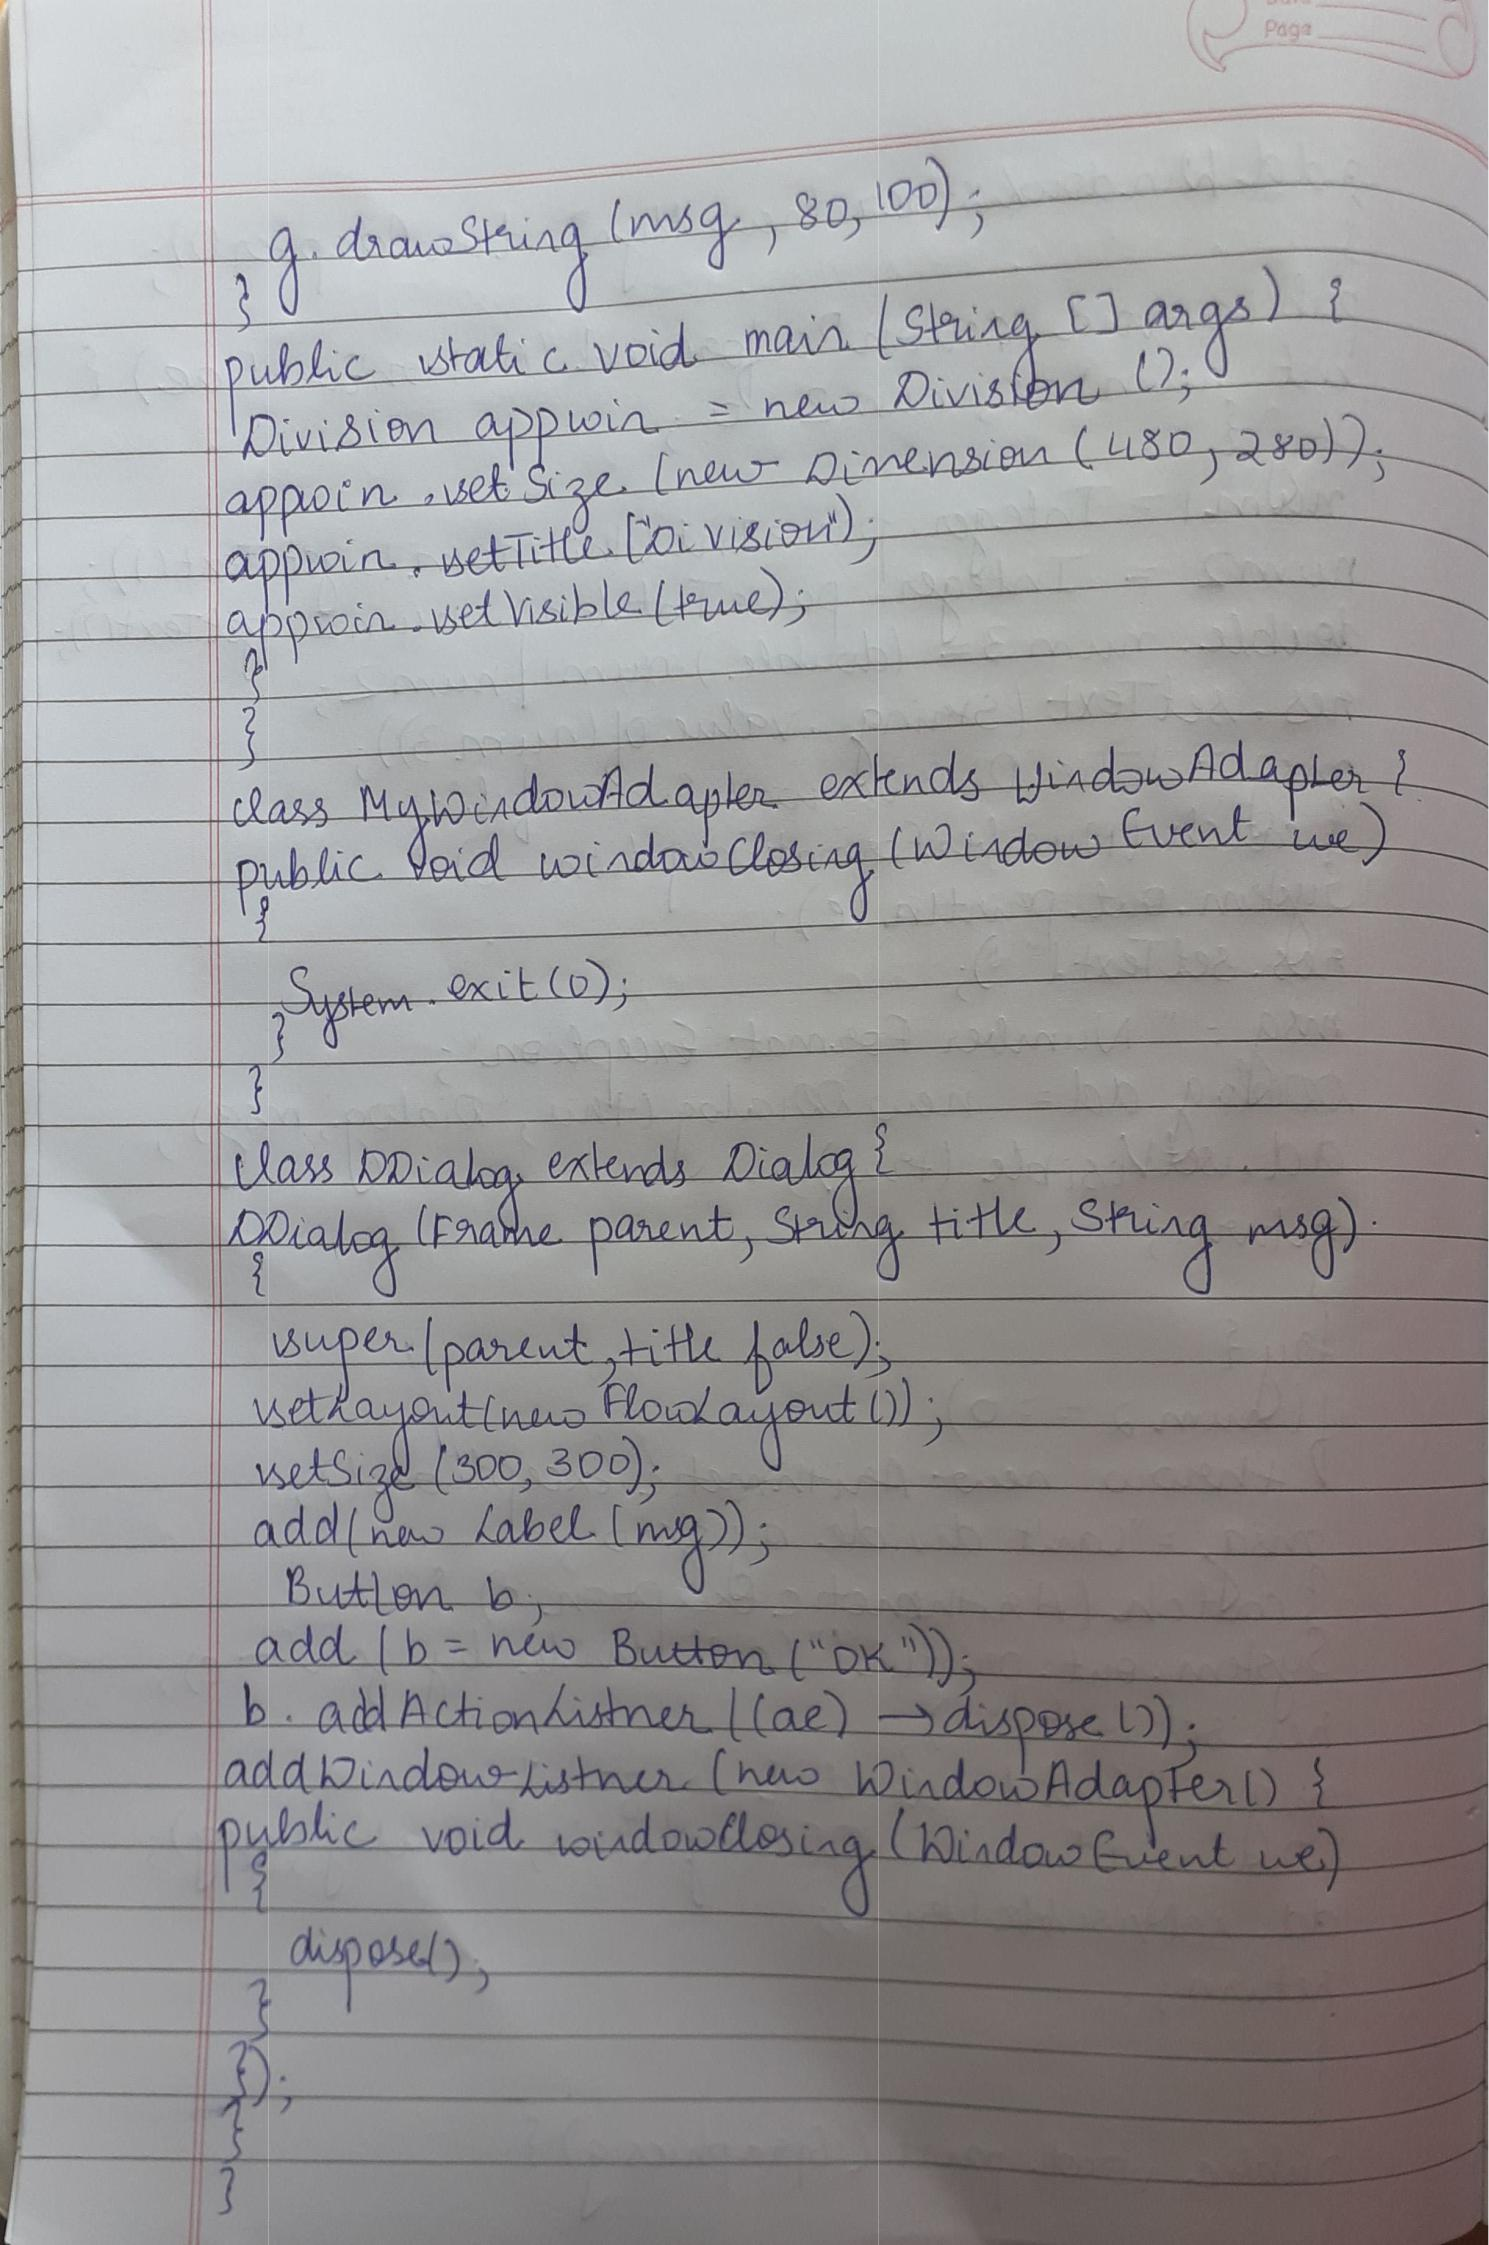 Page
g. drawString (msg, 80, 100);
}
public static void main (String [] args) {
Division appwin = new Division ();
appwin .setSize (new Dimension (480, 280));
appwin. setTitle ("Division");
appwin .setVisible (true);
}
}
class MyWindowAdapter extends WindowAdapter {
public void windowClosing (Window Event we)
{
System. exit (0);
}
}
class DDialog extends Dialog {
DDialog (Frame parent, String title, String msg)
{
super (parent, title false);
setLayout (new FlowLayout ());
setSize (300, 300);
add (new Label (mg));
Button b;
add (b = new Button ("OK"));
b. addActionListner ((ae) → dispose ());
addWindowListner (new WindowAdapter () {
public void windowClosing (Window Event we)
{
dispose();
}
});
}
}